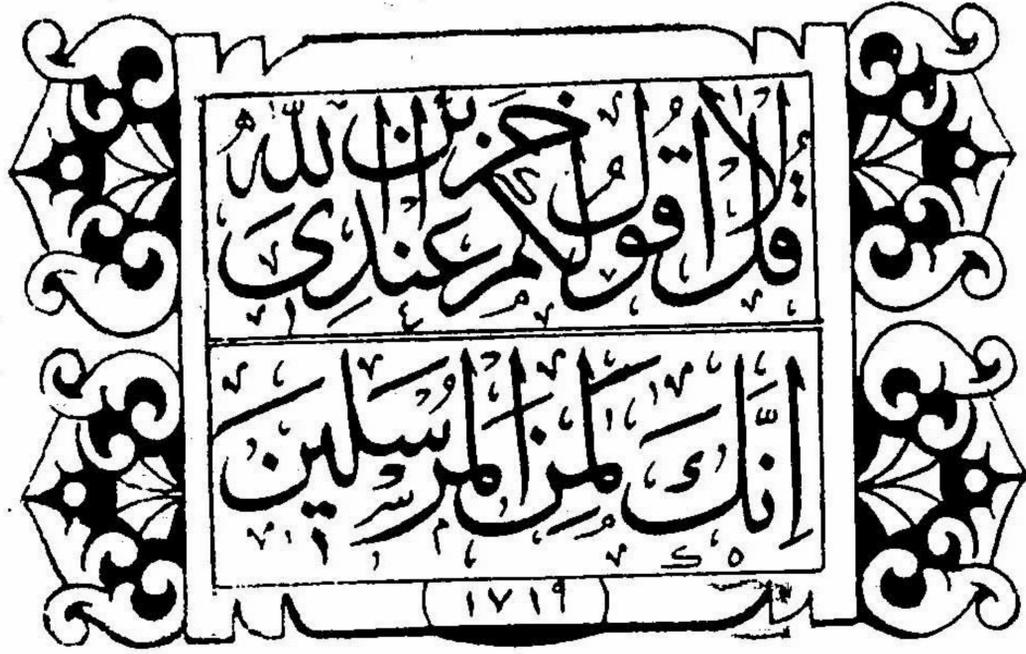 قل لا اقول لكم عندى خزائن الله
اِنَّكَ لَمِنَ المُرسَلِينَ
١٧١٩